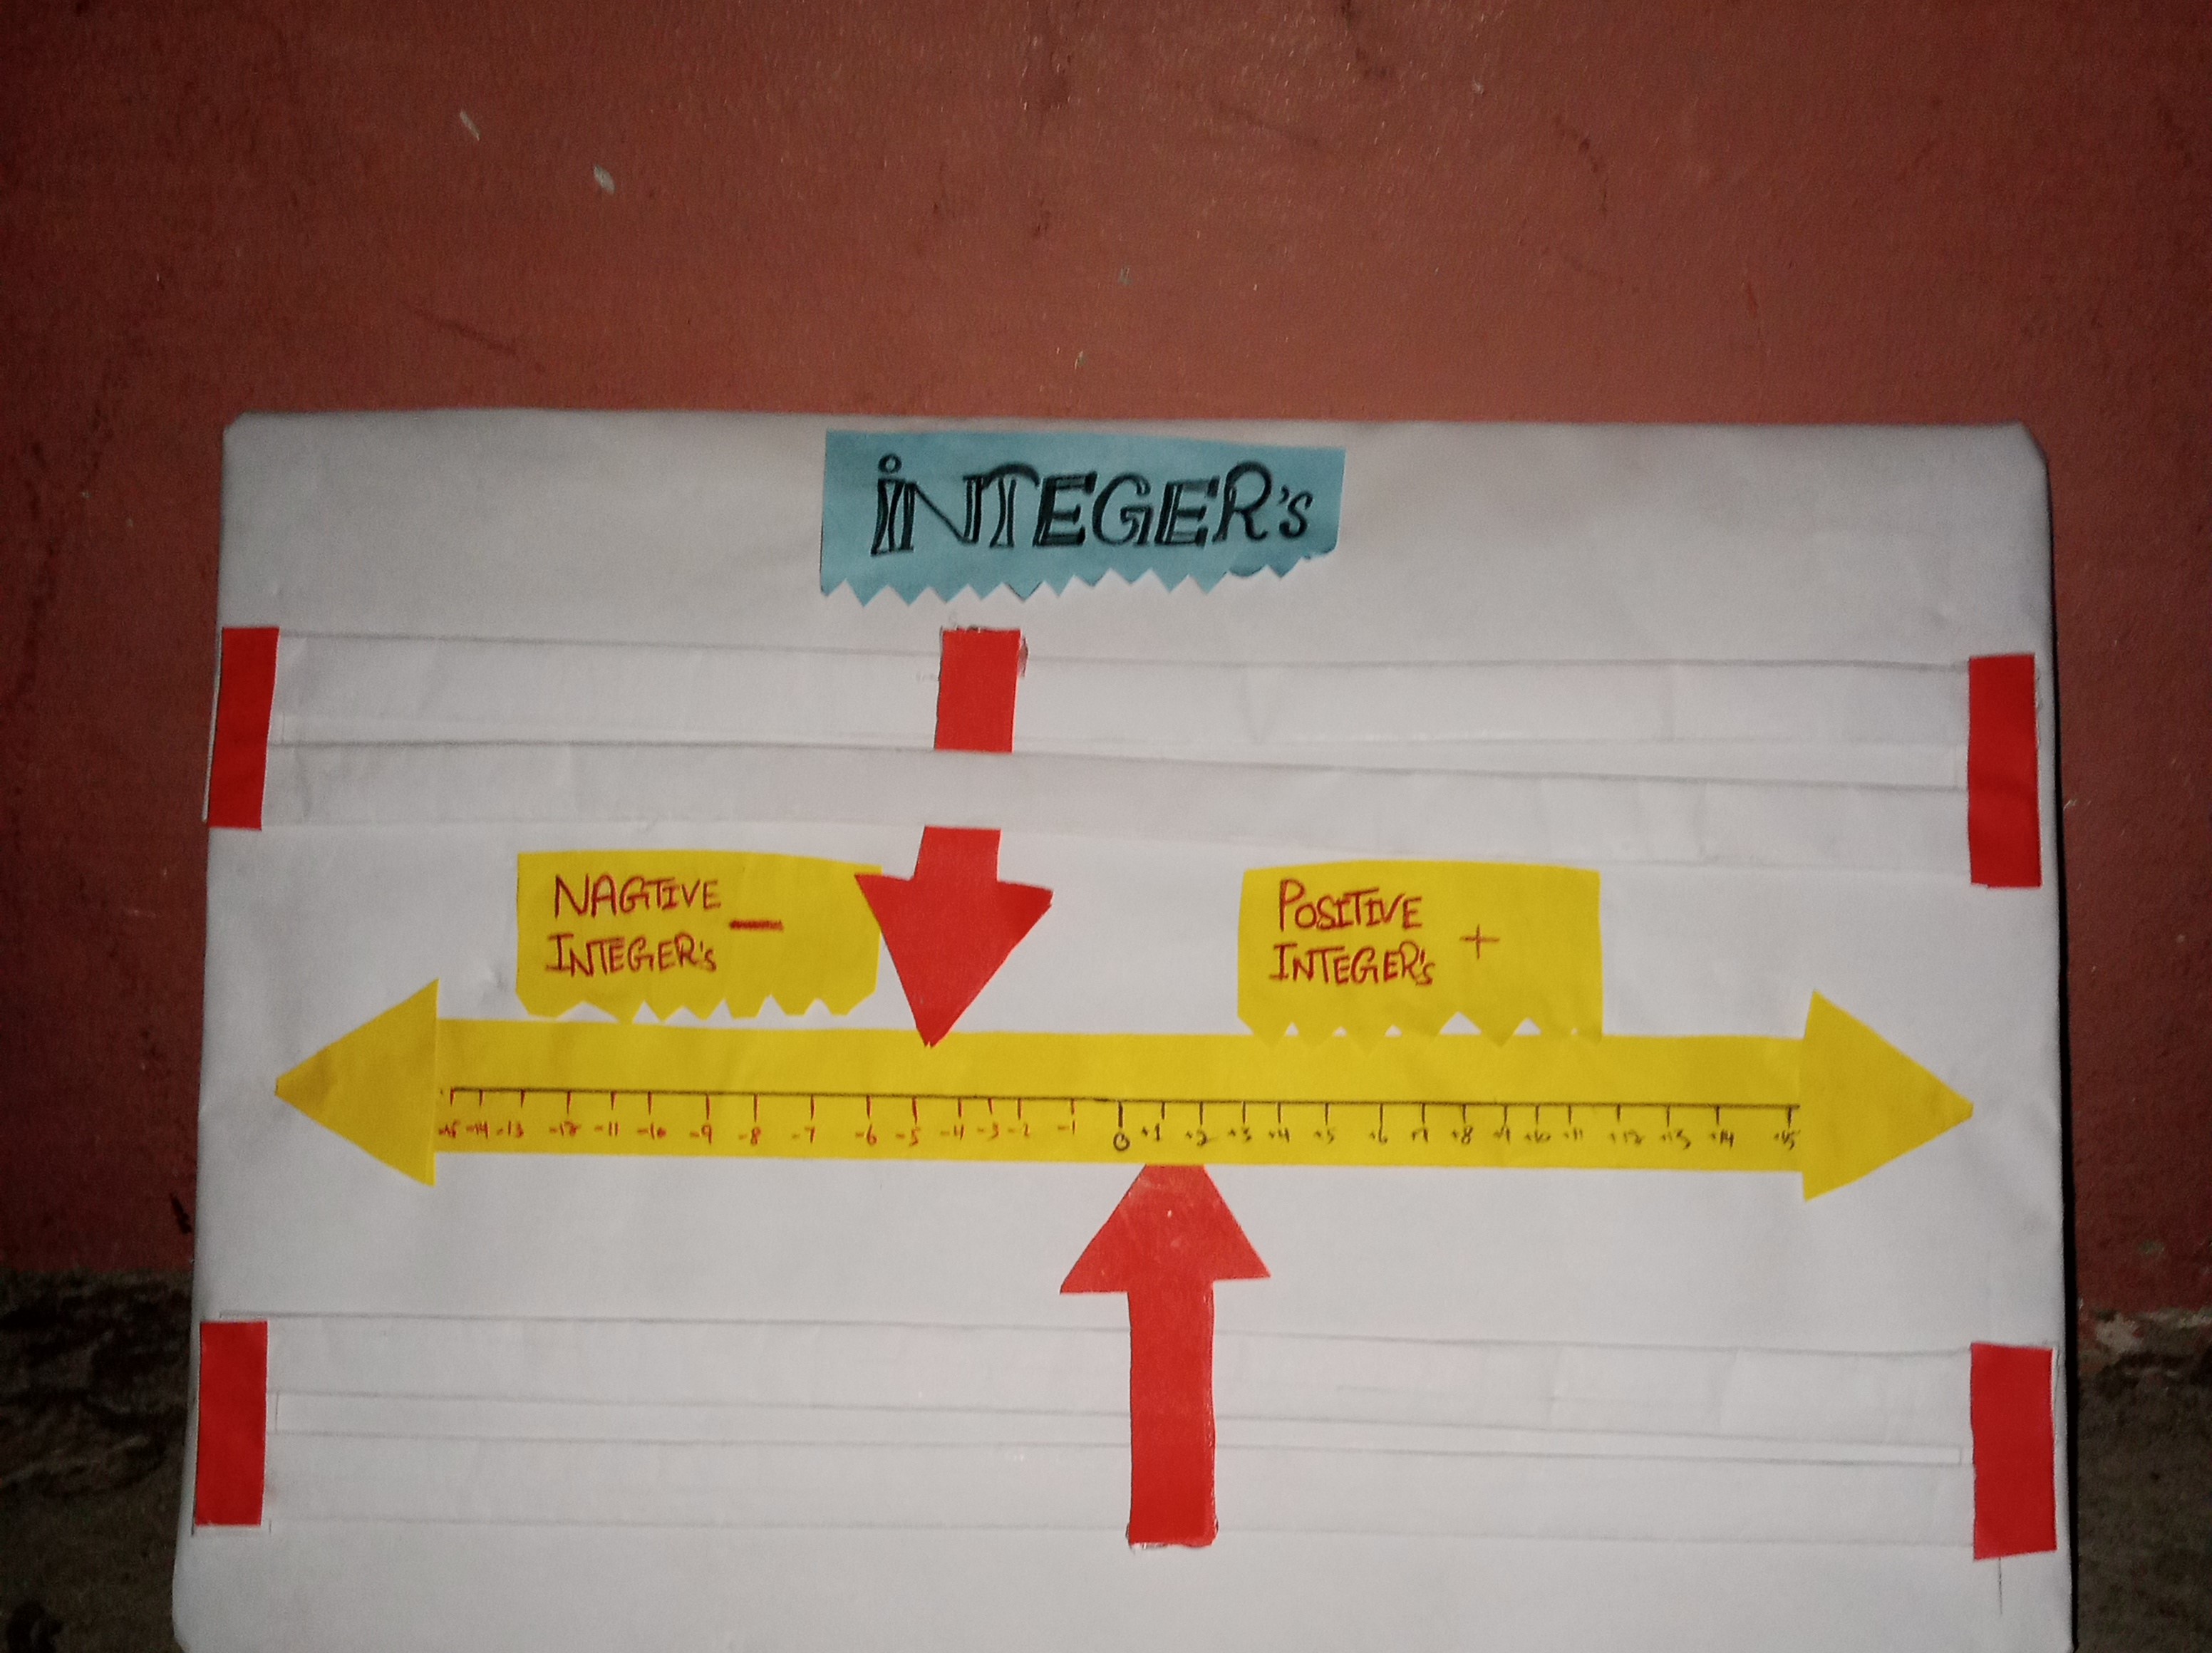 INTEGER's
NAGTIVE —
INTEGER's
POSITIVE +
INTEGER's
-15 -14 -13 -12 -11 -10 -9 -8 -7 -6 -5 -4 -3 -2 -1 0 +1 +2 +3 +4 +5 +6 +7 +8 +9 +10 +11 +12 +13 +14 +15